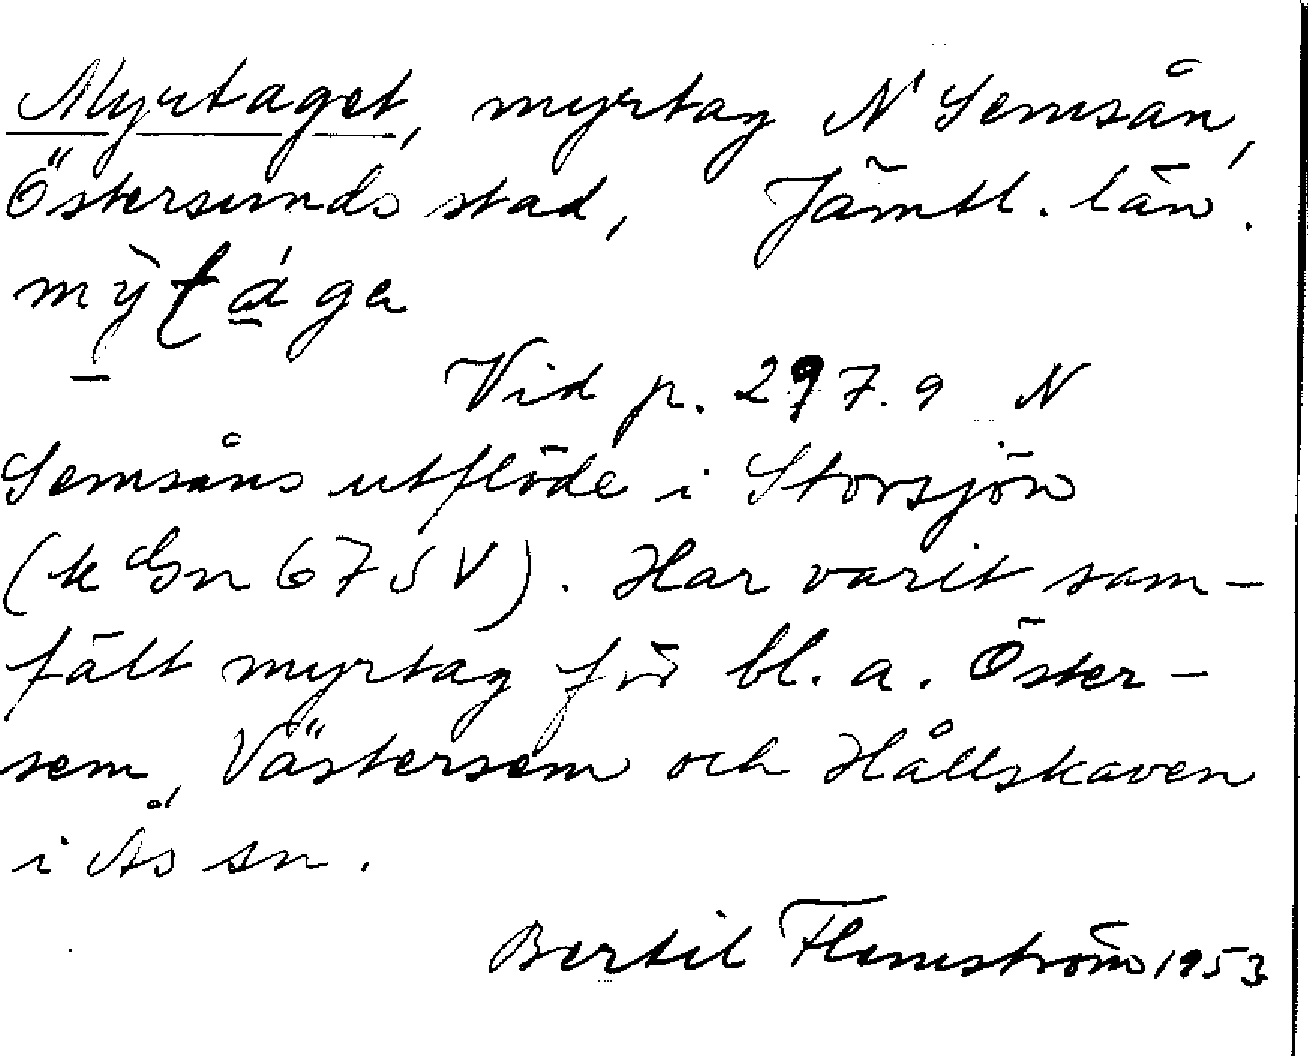 Myrtaget, myrtag N Semsån,
Östersunds stad, Jämtl. län.
mỳtága
Vid p. 297.9 N
Semsåns utflöde i Storsjön
(k Gn 67 SV). Har varit sam-
fällt myrtag för bl. a. Öster-
sem, Västersem och Hållskaven
i Ås sn.
Bertil Flemström 1953